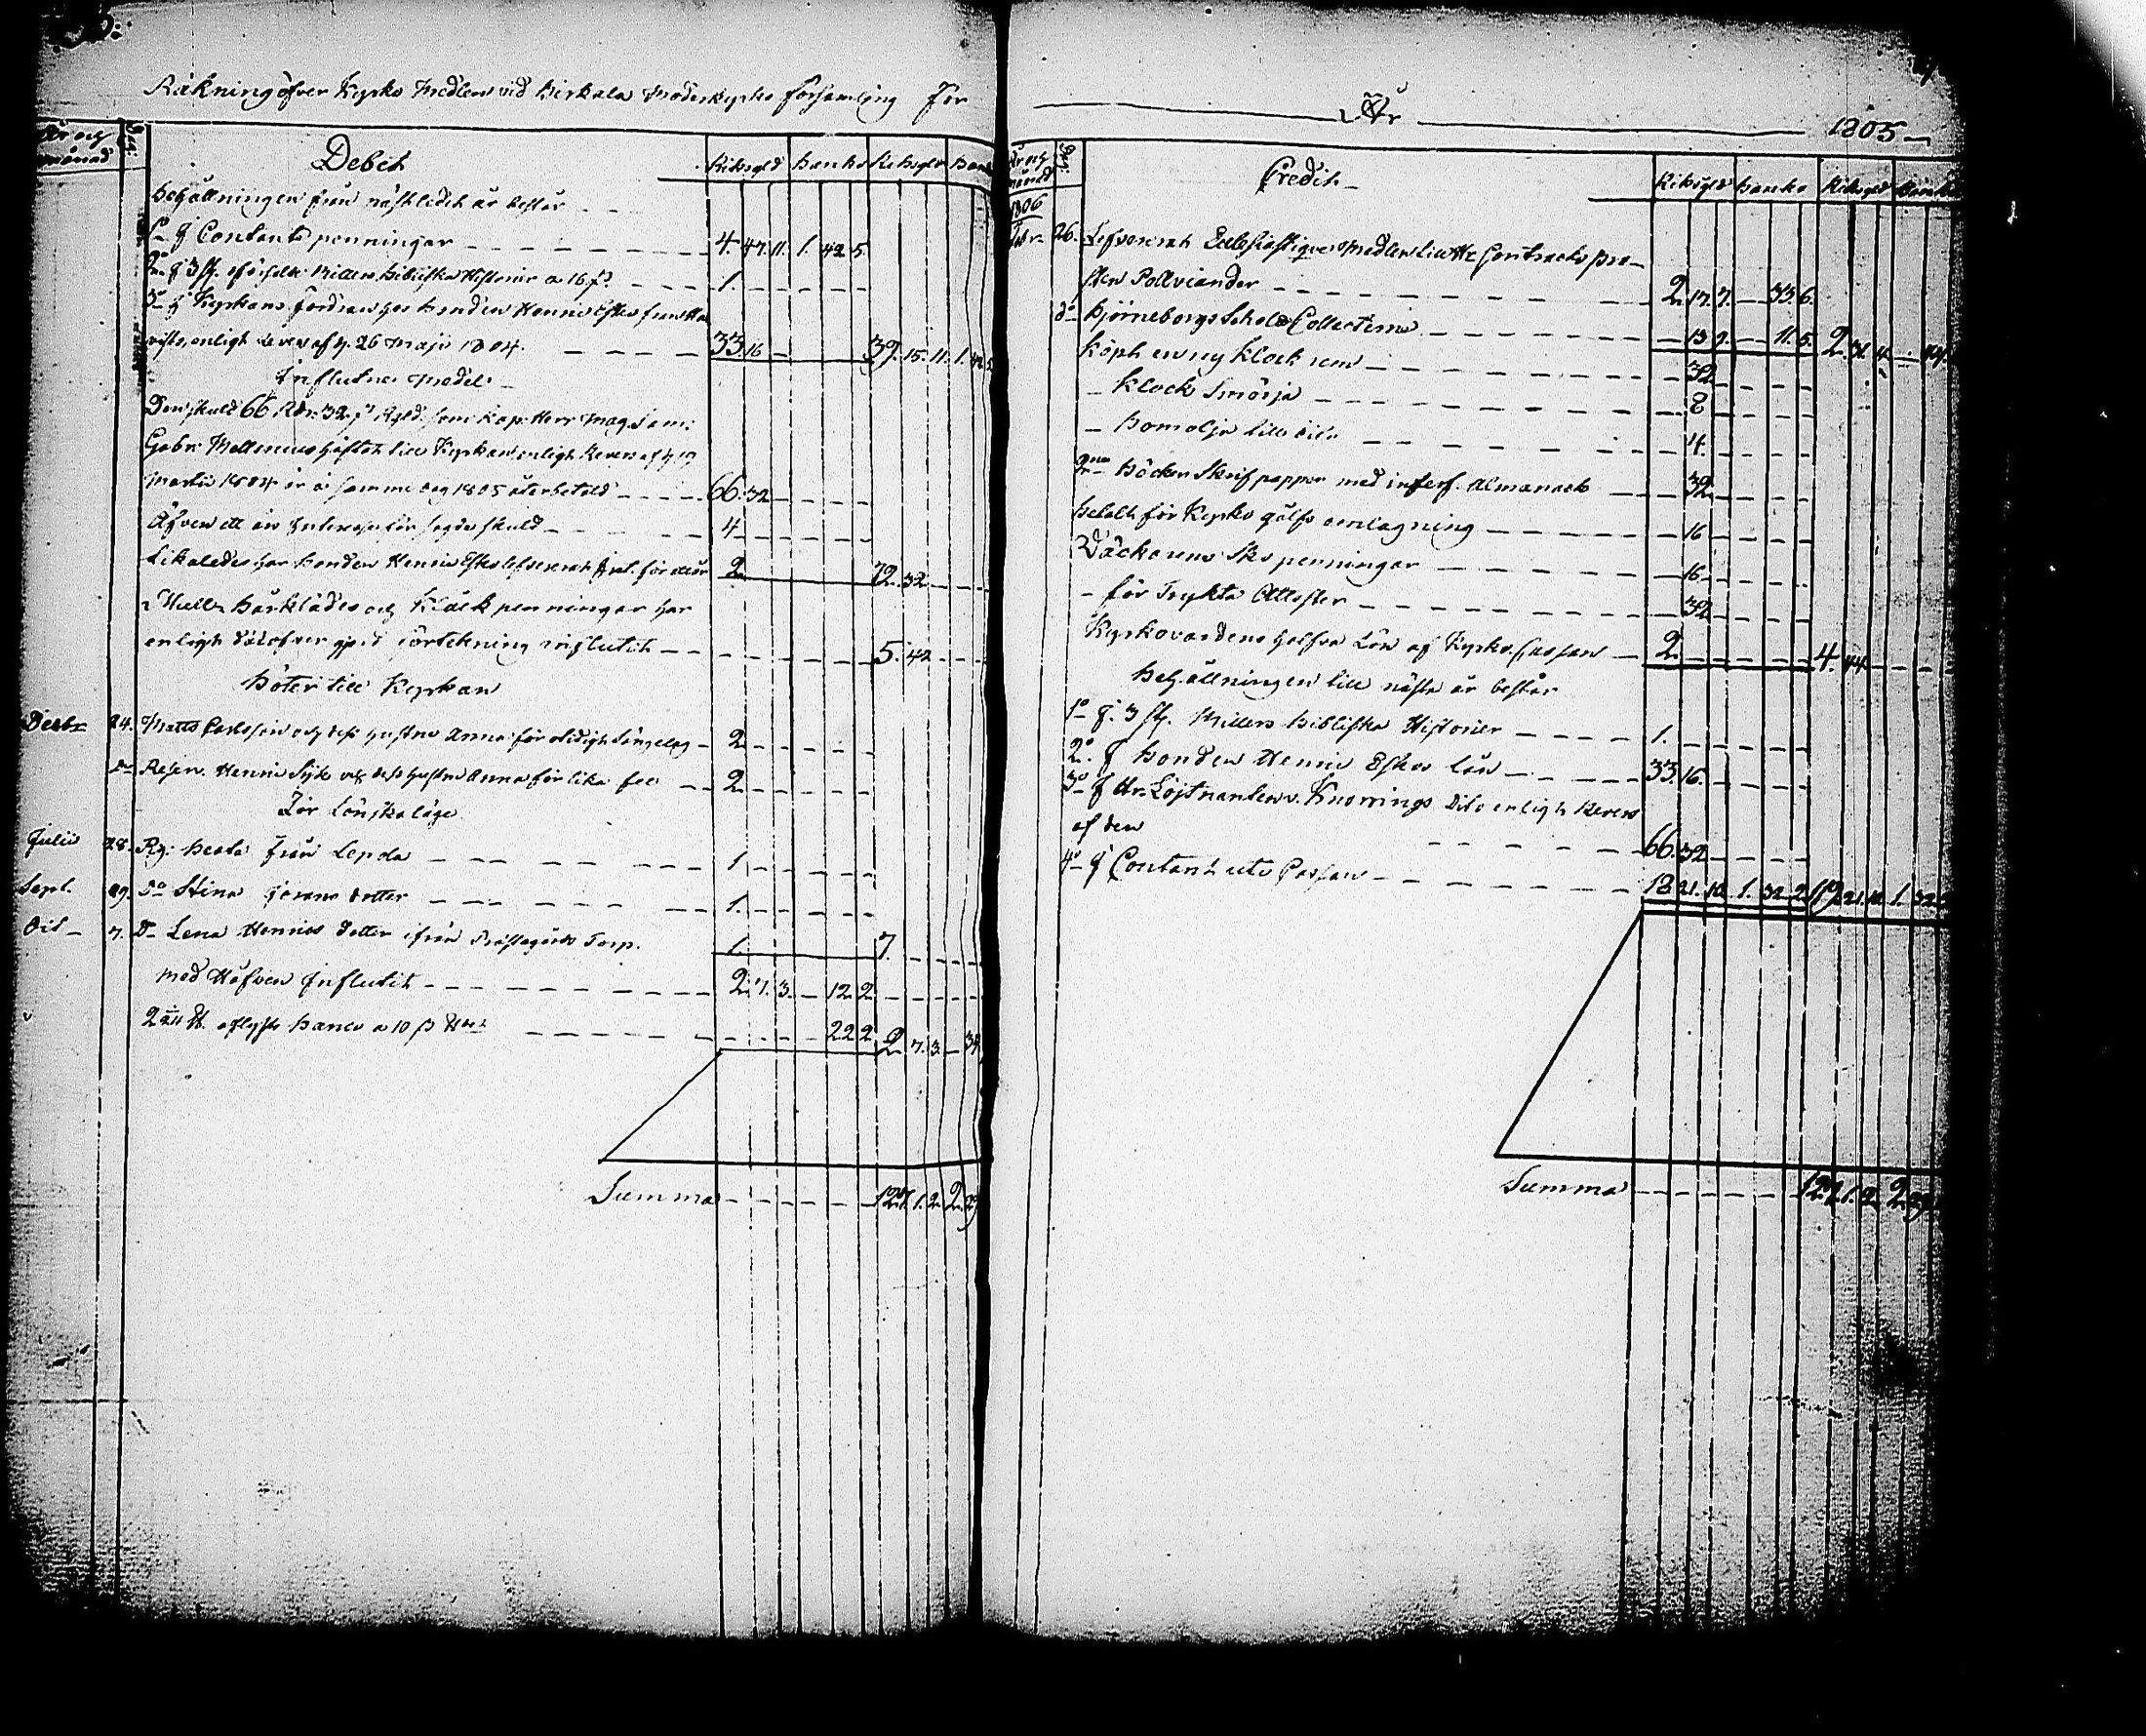 Räkning öfver Kyrko Medlen vid Birkala Moderkyrko församling För
År och månad Dag: Debet Riksgld Banko Riksgld Banko
Behållningen från nästledit år består
1o i Contante penningar 4. 47. 11. 1. 42. 5.
2o i 3 st. Millers Bibliska Historier a 16 ß 1.
3o i Kyrkans fordran hos Bonden Henric Eskos från
enligt Revers af d. 26 Maji 1804. 33. 16 39. 15. 11. 1. 42. 5
Influtne Medel
Den skuld 66 Rdr. 32 ß Rgld. som Kap. Herr Mag. Sam:
Gabr. Mellenius häftat till Kyrkan enligt Revers af d. 19
Martii 1804 är å samma dag 1805 återbetald 66. 32
Äfven ett års Interesse för sagde skuld 4
Likaledes har Bonden Henric Eskos lefvererat Int. för ett år 2. 72. 32
Bårkläde och Kläck penningar har
enligt däröfver gjord förtekning influtit 5. 42
Böter till Kyrkan
Decbr 24. Matts Carlsson och dess hustru Anna för otidigt sängelag 2.
do Reserv. Henric Sijk och dess hustru Anna för lika fel 2.
För Lönskaläge
Julii 28. Pig. Beata från Lepda 1.
Sept. 29. do Stina Jörans dotter 1.
Oct. 7. do Lena Henrics dotter ifrån Prästegårds Torp. 1. 7.
Med Håfven Influtit 2. 7. 3. 12. 2
a 10 ß 22. 2 2. 7. 3. 34
Summa 127. 1. 2. 2. 29
År 1805
År och månad Dag: Credit Riksgld Banko Riksgld Banko
1806
Febr. 26. Lefvererat Ecclesiastique Medlen till Hr Contracts pro-
sten Pollviander 2. 17. 7. 33. 6.
do Björneborgs Schole Collecterne 13. 9. 11. 5. 2. 31. 4.
Köpt en ny Klock rem 32
Klock Smörja 8
Bomolja till dito 4
2ne Böcker Skrif papper med interf. Almanach 32
Betalt för Kyrko gålfs omlagning 16
Väckarens Sko penningar 16
för Tryckte Attester 32
Kyrkovardens halfva Lön af Kyrko Cassan 2. 4. 44
Behållningen till nästa år består
1o i 3 st. Millers Bibliska Historier 1.
2o i Bonden Henric Eskos lån 33. 16.
3o i Hr. Löjtnanten v. Knorrings dito enligt Revers
af den 66. 32
4o i Contant uti Cassan 18. 21. 10. 1. 32. 2. 119. 21. 10. 1. 32. 2
Summa 127. 1. 2. 2. 29